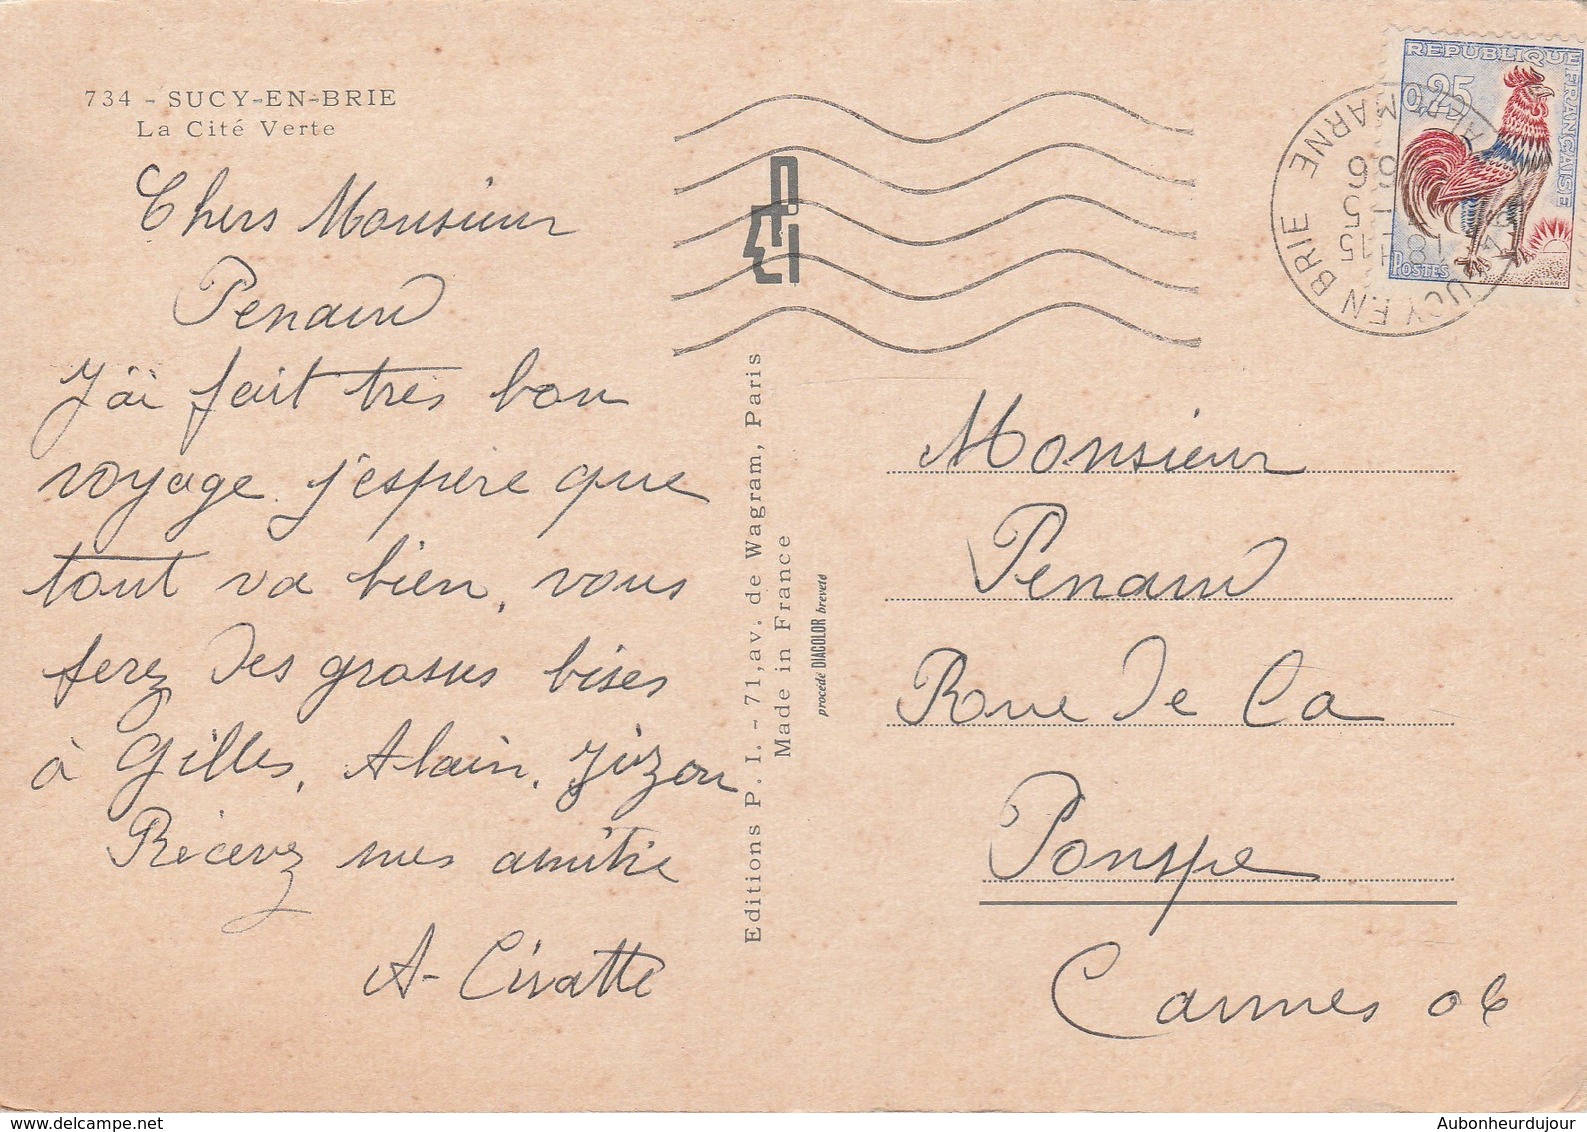 734 - SUCY-EN-BRIE
La Cité Verte
Chers Monsieur
Penaud
J'ai fait très bon
voyage j'espère que
tout va bien, vous
ferez des grosses bises
à Gilles, Alain,
Recevez mes amitié
A- Civatte
Editions P. I. - 71, av. de Wagram, Paris
Made in France
procédé DIACOLOR breveté
REPUBLIQUE FRANÇAISE
0,25
POSTES
DECARIS
SUCY EN BRIE
MARNE
18H15
Monsieur
Penaud
Rue de La
Pompe
Cannes 06
www.delcampe.net
Aubonheurdujour